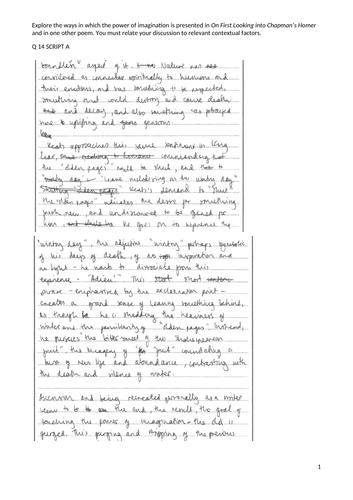 Explore the ways in which the power of imagination is presented in On First Looking into Chapman's Homer
and in one other poem. You must relate your discussion to relevant contextual factors.
Q 14 SCRIPT A
boundless" aspect of it. Nature was
considered as connected spiritually to humans and
their emotions, and was something to be respected,
something that could destroy and cause death
and decay, and also something portrayed
to be uplifting and generous.
Keats approaches this same sentiment in King
Lear, commanding that
the "olden pages" must be shut, and
"Leave melodizing on this wintry day"
Keats's demand to "shut"
the "olden pages" indicates the desire for something
fresh new, and undiscovered to be opened for
him, He goes on to reference the
"wintry day", the adjective "wintry" perhaps symbolic
of his days of death, of no inspiration and
no light - he wants to dissociate from this
experience - "Adieu!" This short
phrase - emphasised by the exclamation point -
creates a grand sense of leaving something behind,
as though he is shedding the heaviness of
winter and the familiarity of "olden pages". Instead,
he pursues the bitter sweet of this Shakespearean
fruit", the imagery of "fruit" connoting a
burst of new life and abundance, contrasting with
the death and silence of winter.
and being recreated personally as a writer
seems to be the end, the result, the goal of
touching the power of imagination - the old is
purged. This purging and stripping of the previous
1